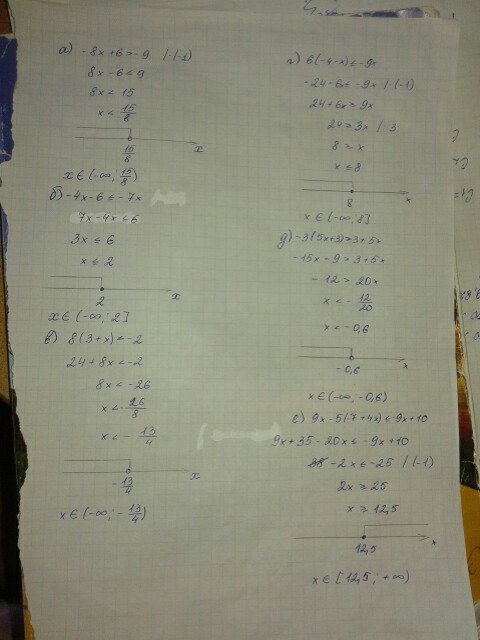 а) -8x+6>-9 |·(-1)
8x-6<9
8x<15
x<15/8
15/8
x
x∈(-∞; 15/8)
б) -4x-6≤-7x
7x-4x≤6
3x≤6
x≤2
2
x
x∈(-∞; 2]
в) 8(3+x)<-2
24+8x<-2
8x<-26
x<-26/8
x<-13/4
-13/4
x
x∈(-∞; -13/4)
г) 6(-4-x)≤-9x
-24-6x≤-9x |·(-1)
24+6x≥9x
24≥3x |:3
8≥x
x≤8
8
x
x∈(-∞, 8]
д) -3(5x+3)>3+5x
-15x-9>3+5x
-12>20x
x<-12/20
x<-0,6
-0,6
x
x∈(-∞, -0,6)
е) 9x-5(7+4x)≤9x+10
9x+35-20x≤-9x+10
-2x≤-25 |(-1)
2x≥25
x≥12,5
12,5
x
x∈[12,5; +∞)